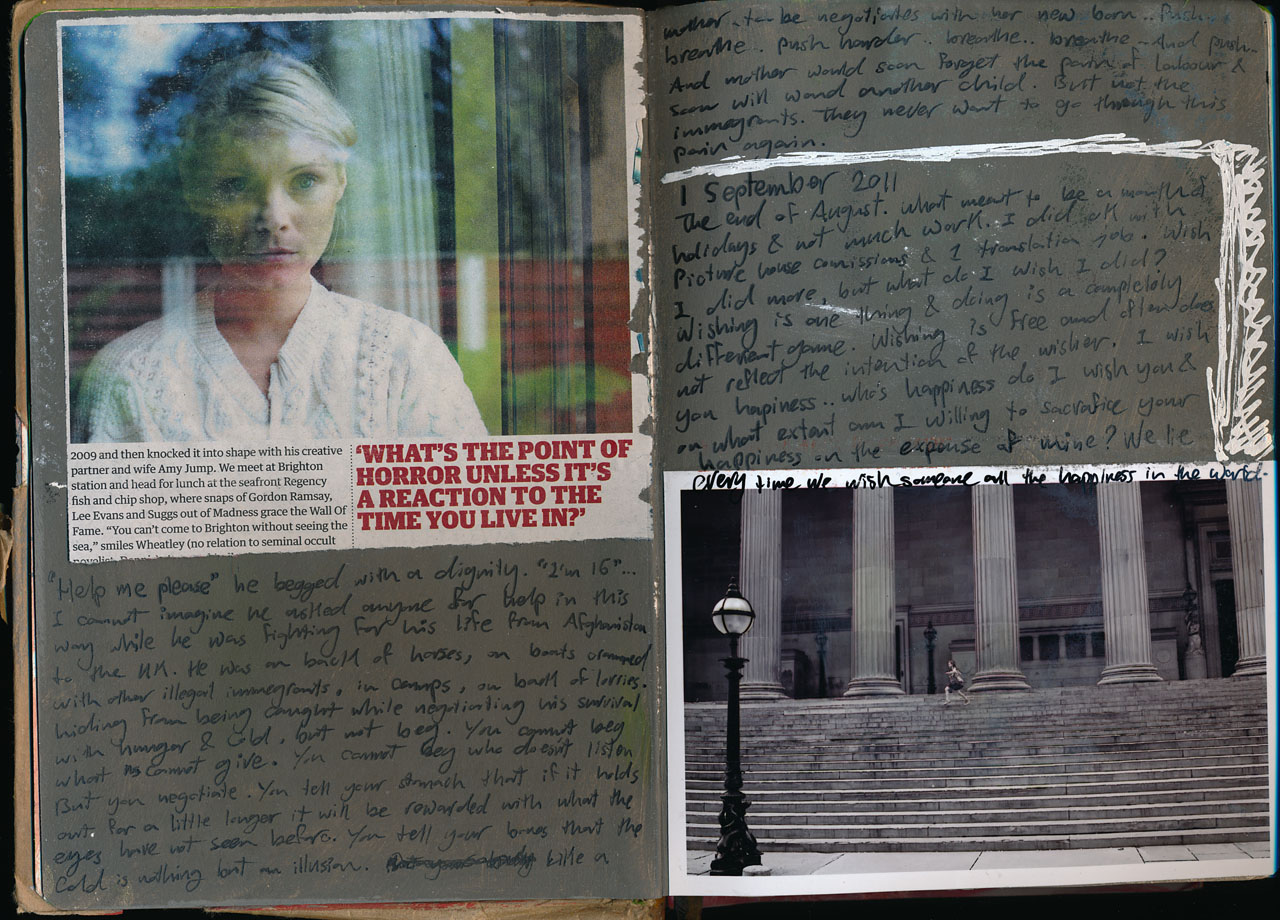 2009 and then knocked it into shape with his creative
partner and wife Amy Jump. We meet at Brighton
station and head for lunch at the seafront Regency
fish and chip shop, where snaps of Gordon Ramsay,
Lee Evans and Suggs out of Madness grace the Wall Of
Fame. “You can’t come to Brighton without seeing the
sea,” smiles Wheatley (no relation to seminal occult
‘WHAT’S THE POINT OF
HORROR UNLESS IT’S
A REACTION TO THE
TIME YOU LIVE IN?’
"Help me please" he begged with a dignity. "I'm 16"...
I cannot imagine he asked anyone for help in this
way while he was fighting for his life from Afghanistan
to the UK. He was on back of horses, on boats crammed
with other illegal immegrants, in camps, on back of lorries.
hiding from being caught while negotiating his survival
with hunger & cold, but not beg. You cannot beg
what cannot give. You cannot beg who doesn't listen
But you negotiate. You tell your stomach that if it holds
out for a little longer it will be rewarded with what the
eyes have not seen before. You tell your bones that the
cold is nothing but an illusion. like a
mother-to-be negotiates with her new born.. Push..
breathe.. push harder.. breathe.. breathe.. And push..
And mother would soon forget the pain of labour &
soon will want another child. But not the
immegrants. They never want to go through this
pain again.
1 September 2011
The end of August. What meant to be a month of
holidays & not much work. I did ok with
Picture house comissions & 1 translation job. Wish
I did more, but what do I wish I did?
Wishing is one thing & doing is a completely
different game. Wishing is free and often does
not reflect the intention of the wisher. I wish
you hapiness.. who's happiness do I wish you &
on what extent am I willing to sacrafice your
happiness on the expense of mine? We lie
every time we wish someone all the happiness in the world.